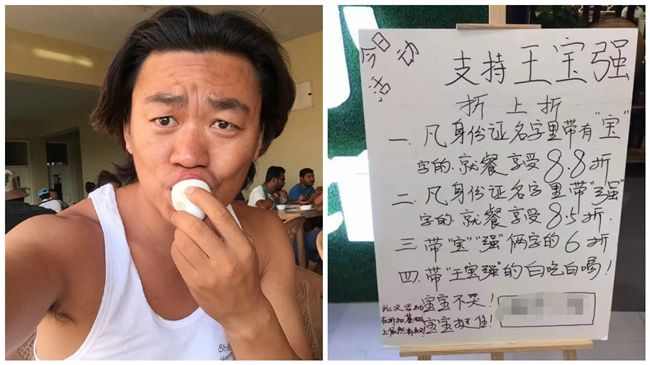 今日活动
支持王宝强
折上折
一、凡身份证名字里带有"宝"
字的就餐享受8.8折
二、凡身份证名字里带"强"
字的就餐享受8.5折.
三、带"宝""强"俩字的6折
四、带"王宝强"的白吃白喝!
宝宝不哭!
宝宝挺住!
此次活动
在折扣基础
上依然有效!